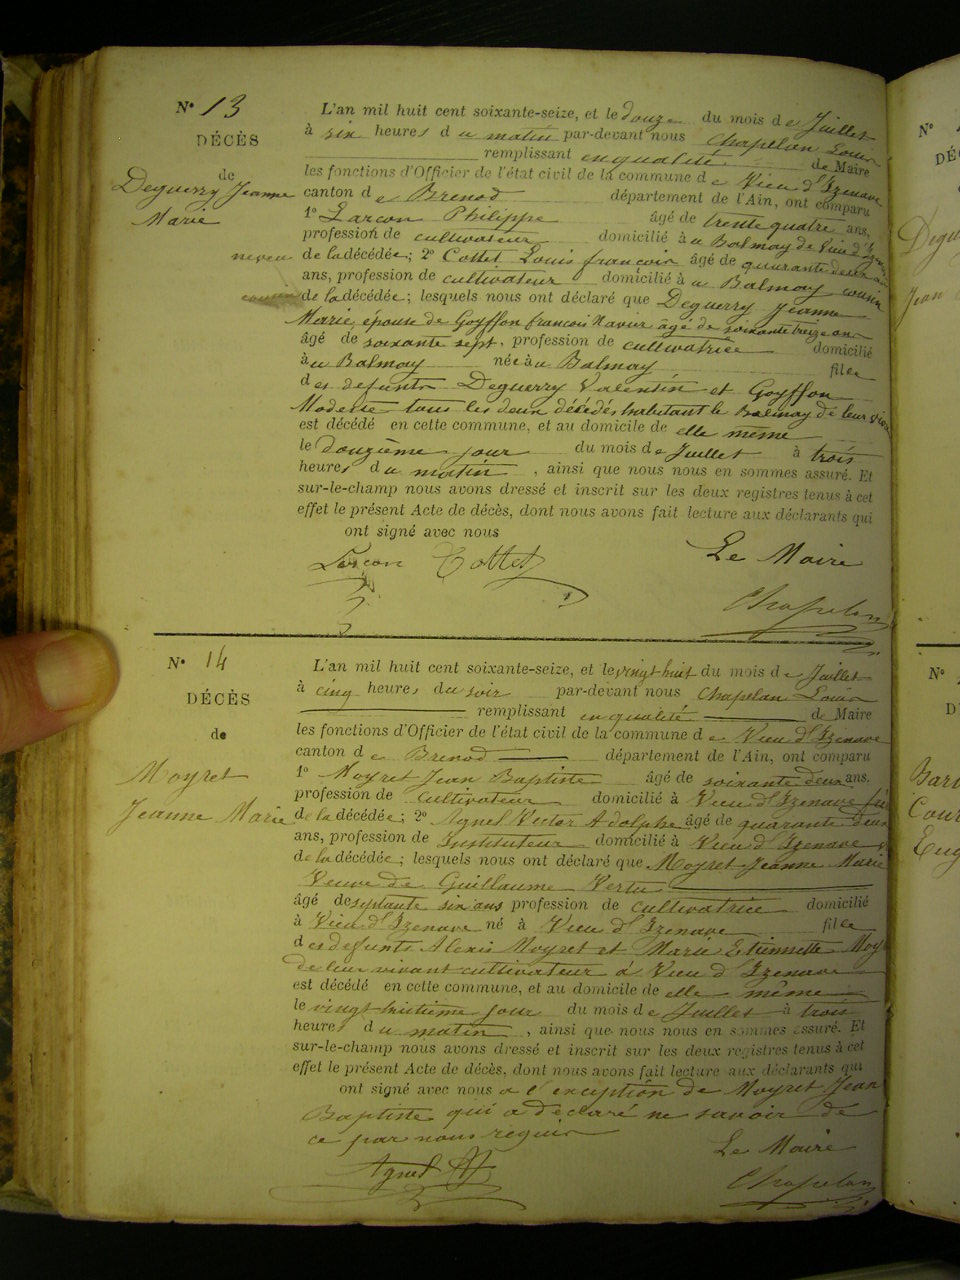 N° 13
DÉCÈS
de
Deguerry Jeanne
Marie
L'an mil huit cent soixante-seize, et le douze du mois de Juillet
à six heures du matin par-devant nous Chapelan Louis
remplissant en qualité de Maire
les fonctions d'Officier de l'état civil de la commune de Vieu d'Izenave
canton de Brenod département de l'Ain, ont comparu
1° Larcon Philippe âgé de trente quatre ans,
profession de cultivateur domicilié à au Balmay de Vieu d'Izenave
neveu de la décédée; 2° Cottet Louis françois âgé de quarante deux
ans, profession de cultivateur domicilié à au Balmay cousin
de la décédée; lesquels nous ont déclaré que Deguerry Jeanne
Marie, épouse de Goyffon francois Xavier âgé de soixante treize ans
âgé de soixante sept, profession de cultivatrice domicilié
à au Balmay née à au Balmay fille
des défunts Deguerry Valentin et Goyffon
Modeste tous les deux décédés habitant le Balmay de leur vivant
est décédé en cette commune, et au domicile de elle même
le douzième jour du mois de Juillet à trois
heures du matin, ainsi que nous nous en sommes assuré. Et
sur-le-champ nous avons dressé et inscrit sur les deux registres tenus à cet
effet le présent Acte de décès, dont nous avons fait lecture aux déclarants qui
ont signé avec nous
Larcon Cottet Le Maire
Chapelan
N° 14
DÉCÈS
de
Moyret
Jeanne Marie
L'an mil huit cent soixante-seize, et le vingt huit du mois de Juillet
à cinq heures du soir par-devant nous Chapelan Louis
remplissant en qualité de Maire
les fonctions d'Officier de l'état civil de la commune de Vieu d'Izenave
canton de Brenod département de l'Ain, ont comparu
1° Moyret Jean Baptiste âgé de soixante deux ans.
profession de cultivateur domicilié à Vieu d'Izenave
de la décédée; 2° Agnel Victor Adolphe âgé de quarante deux
ans, profession de Instituteur domicilié à Vieu d'Izenave
de la décédée; lesquels nous ont déclaré que Moyret Jeanne Marie
Veuve de Guillaume Vertu
âgé de septante six ans profession de cultivatrice domicilié
à Vieu d'Izenave né à Vieu d'Izenave fille
des défunts Alexis Moyret et Marie Etiennette
de leur vivant cultivateur à Vieu d'Izenave
est décédé en cette commune, et au domicile de elle même
le vingt huitième jour du mois de Juillet à trois
heures du matin, ainsi que nous nous en sommes assuré. Et
sur-le-champ nous avons dressé et inscrit sur les deux registres tenus à cet
effet le présent Acte de décès, dont nous avons fait lecture aux déclarants qui
ont signé avec nous a l'exception de Moyret Jean
Baptiste qui a déclaré ne savoir de
ce par nous requis
Le Maire
Agnel
Chapelan